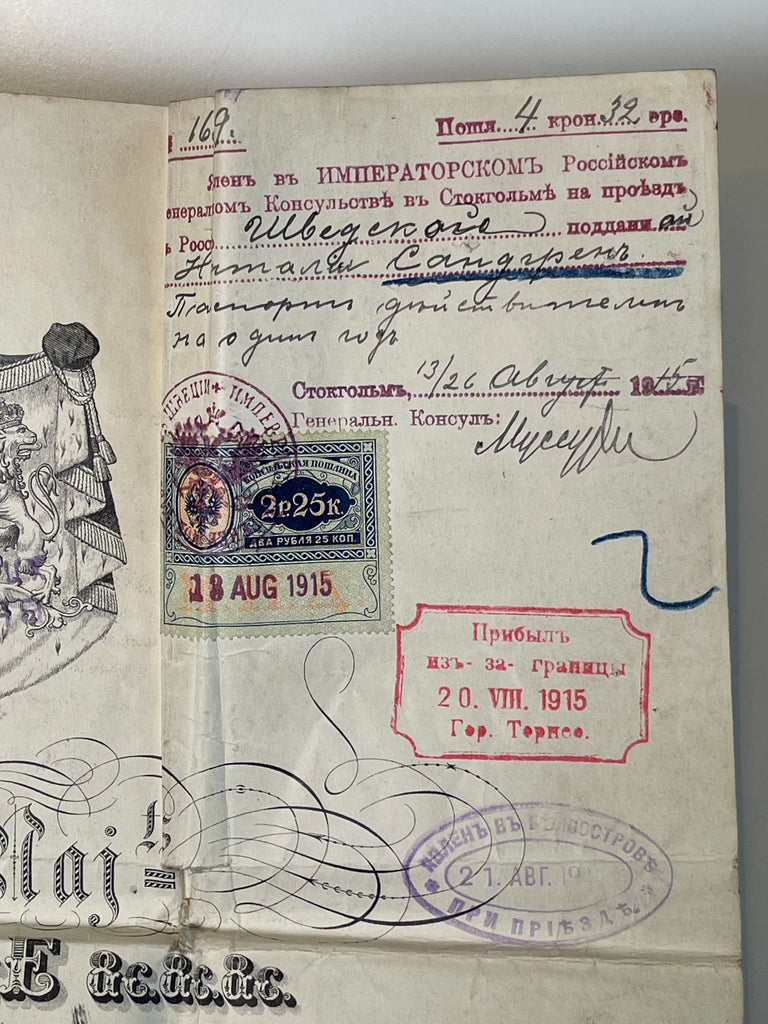 169.
Пошл. 4 крон. 32 эре.
въ ИМПЕРАТОРСКОМЪ Россійскомъ
омъ Консульствѣ въ Стокгольмѣ на проѣздъ
Росс Шведскаго поддан ой
Наталіи Сандгренъ.
Паспортъ дѣйствителенъ
на одинъ годъ
Стокгольмъ, 13/26 Августа 1915 г.
Генеральн. Консулъ:
ШВЕЦІИ ИМПЕ
КОНСУЛЬСКАЯ ПОШЛИНА
2р.25к.
ДВА РУБЛЯ 25 КОП.
13 AUG 1915
Прибылъ
изъ-за-границы
20. VIII. 1915
Гор. Торнео.
ЯВЛЕНЪ ВЪ БѢЛООСТРОВѢ
21. АВГ. 19
ПРИ ПРІѢЗДѢ
Maj:t
E &c. &c. &c.